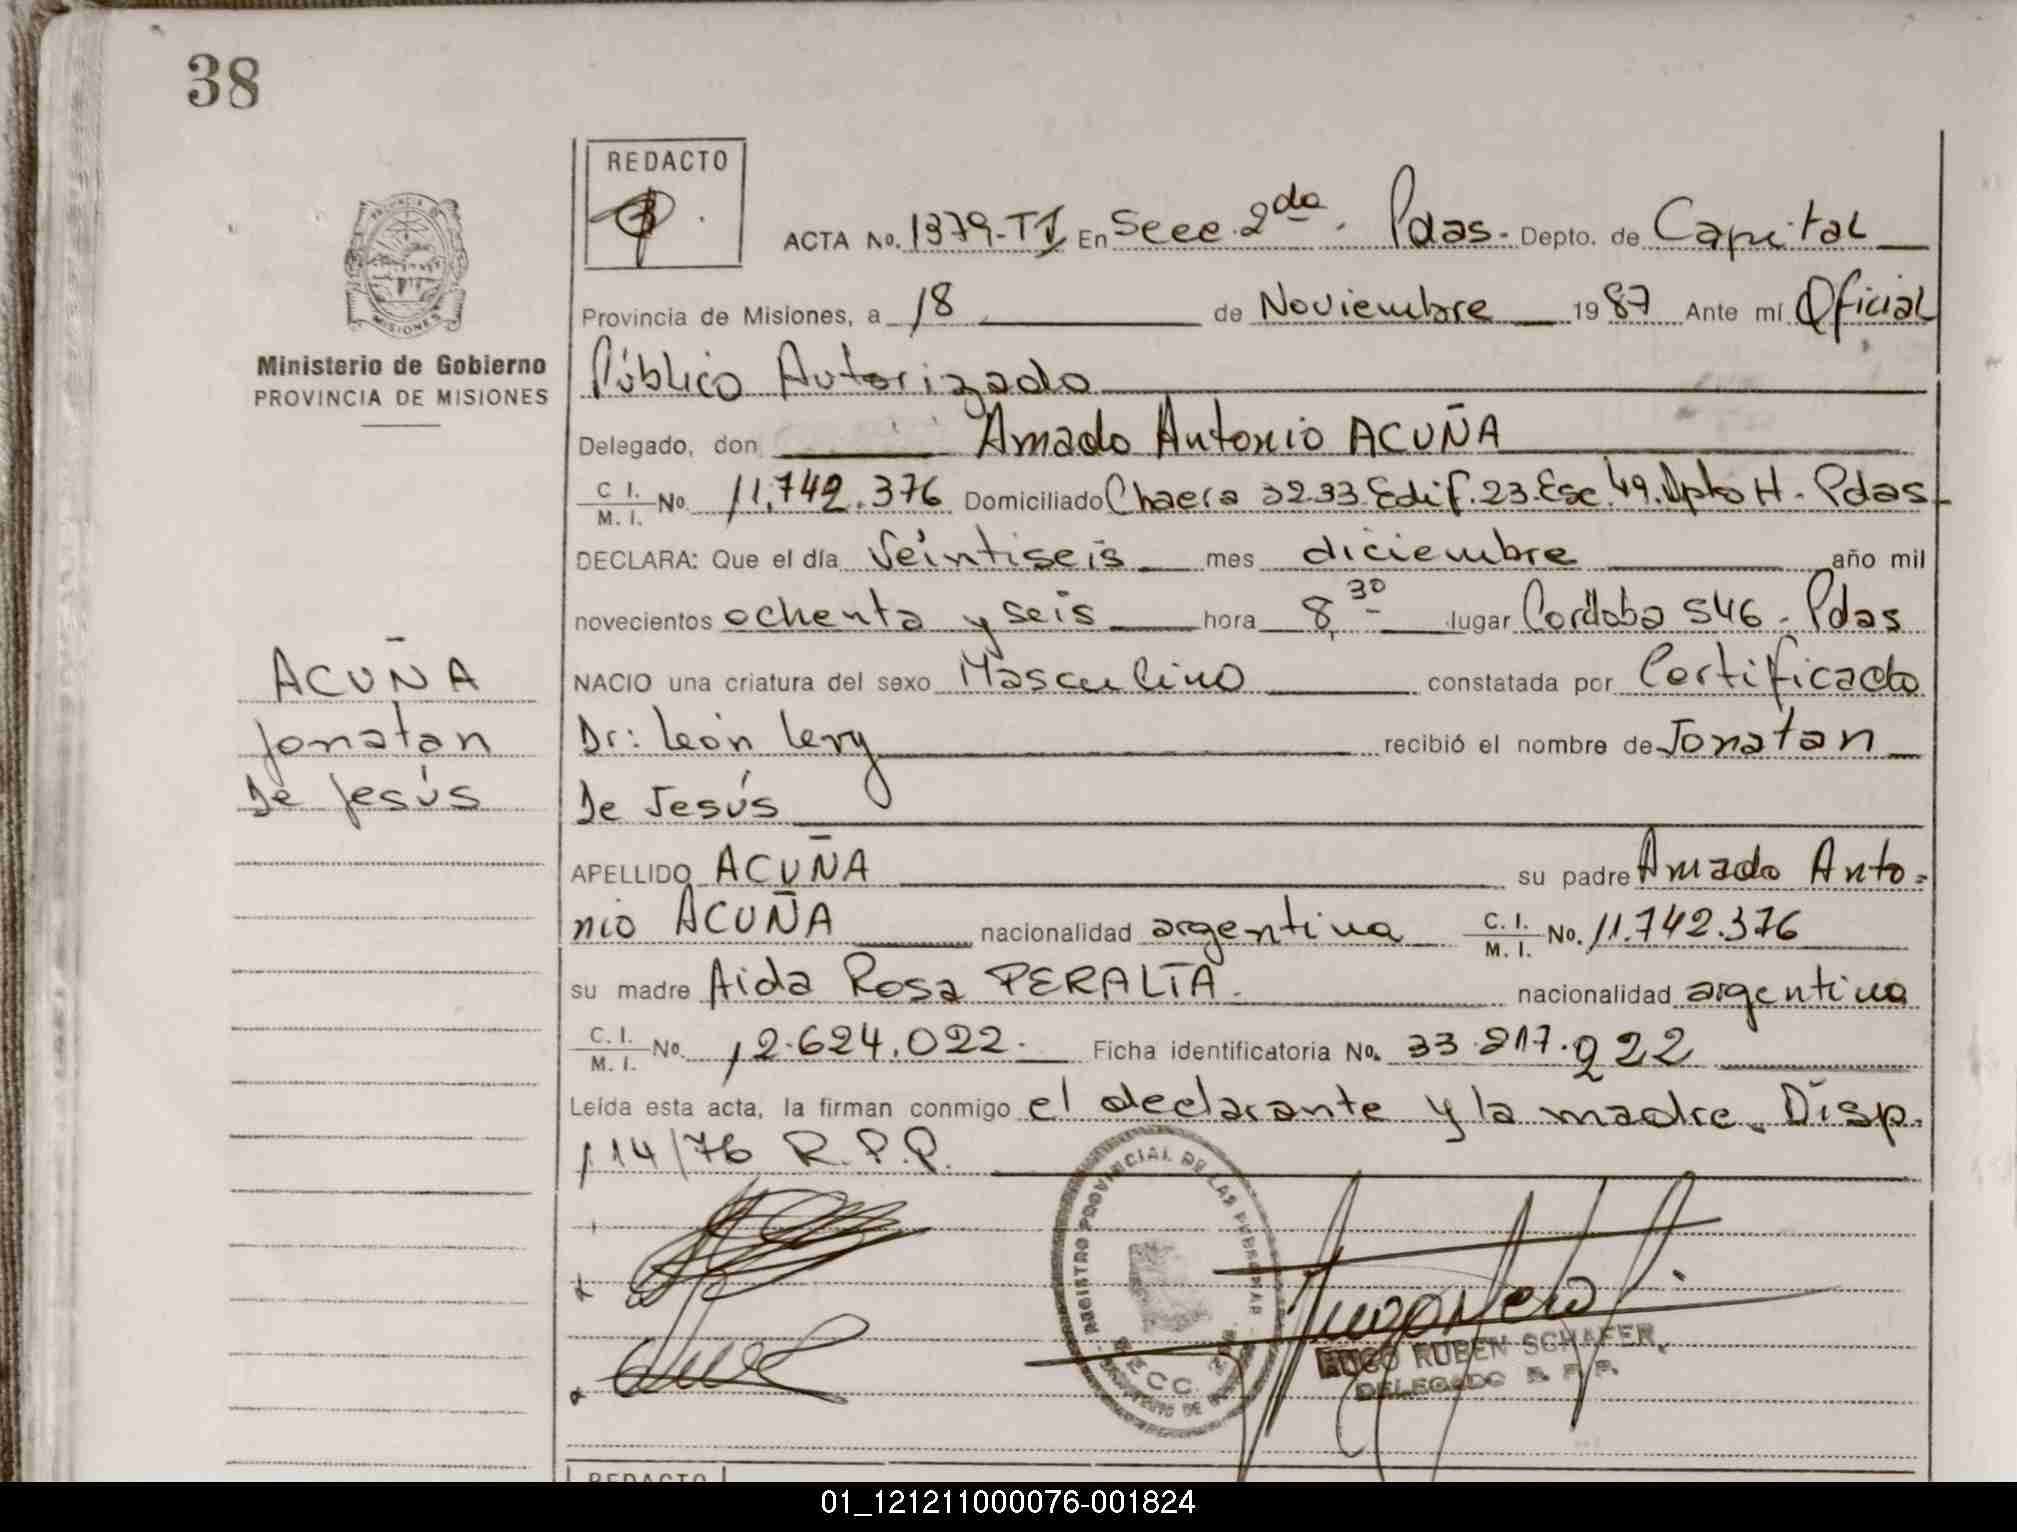 38
REDACTO
ACTA No. 1379-T I En Secc. 2da. Pdas- Depto. de Capital
Provincia de Misiones, a 18 de Noviembre 1987 Ante mí Oficial
Ministerio de Gobierno
PROVINCIA DE MISIONES
Público Autorizado
Delegado, don Amado Antonio ACUÑA
C. I. / M. I. No. 11.742.376 Domiciliado Chacra 32.33. Edif. 23. Esc. 49. Dpto H. Pdas-
DECLARA: Que el día Veintiseis mes diciembre año mil
novecientos ochenta y seis hora 8,30 lugar Cordoba 546. Pdas
NACIO una criatura del sexo Masculino constatada por Certificado
Dr: León Levy recibió el nombre de Jonatan
De Jesús
ACUÑA
Jonatan
De Jesús
APELLIDO ACUÑA su padre Amado Anto-
nio ACUÑA nacionalidad argentina C. I. / M. I. No. 11.742.376
su madre Aida Rosa PERALTA. nacionalidad argentina
C. I. / M. I. No. 12.624.022. Ficha identificatoria No. 33.217.922
Leída esta acta, la firman conmigo el declarante y la madre. Disp.
114/76 R.P.P.
REGISTRO PROVINCIAL DE LAS PERSONAS
SECC.
HUGO RUBEN SCHAFER
DELEGADO R. P. P.
REDACTO
01_121211000076-001824